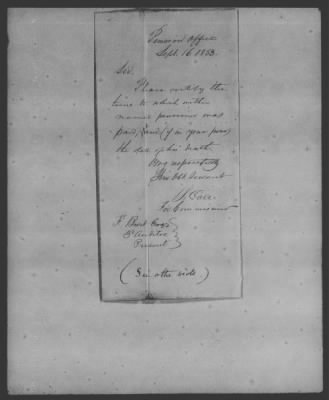 Pension Office
Sept. 16. 1853.
Sir.
Please certify the
time to which within
named pensioner was
paid, and (if in your power)
the date of his death
Very respectfully
Your Obt Servant
For Commissioner
F. Burt Esqr
3d Auditor
Present
(See other side.)